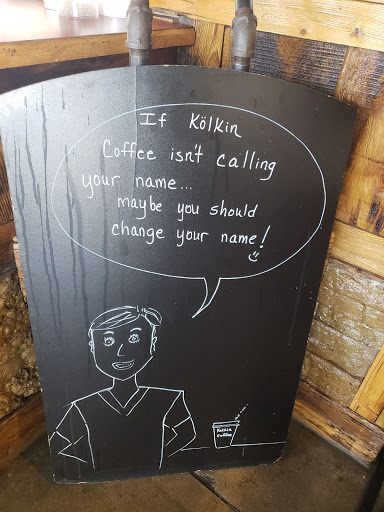 If Kölkin
Coffee isn't calling
your name...
maybe you should
change your name!
Kölkin
Coffee